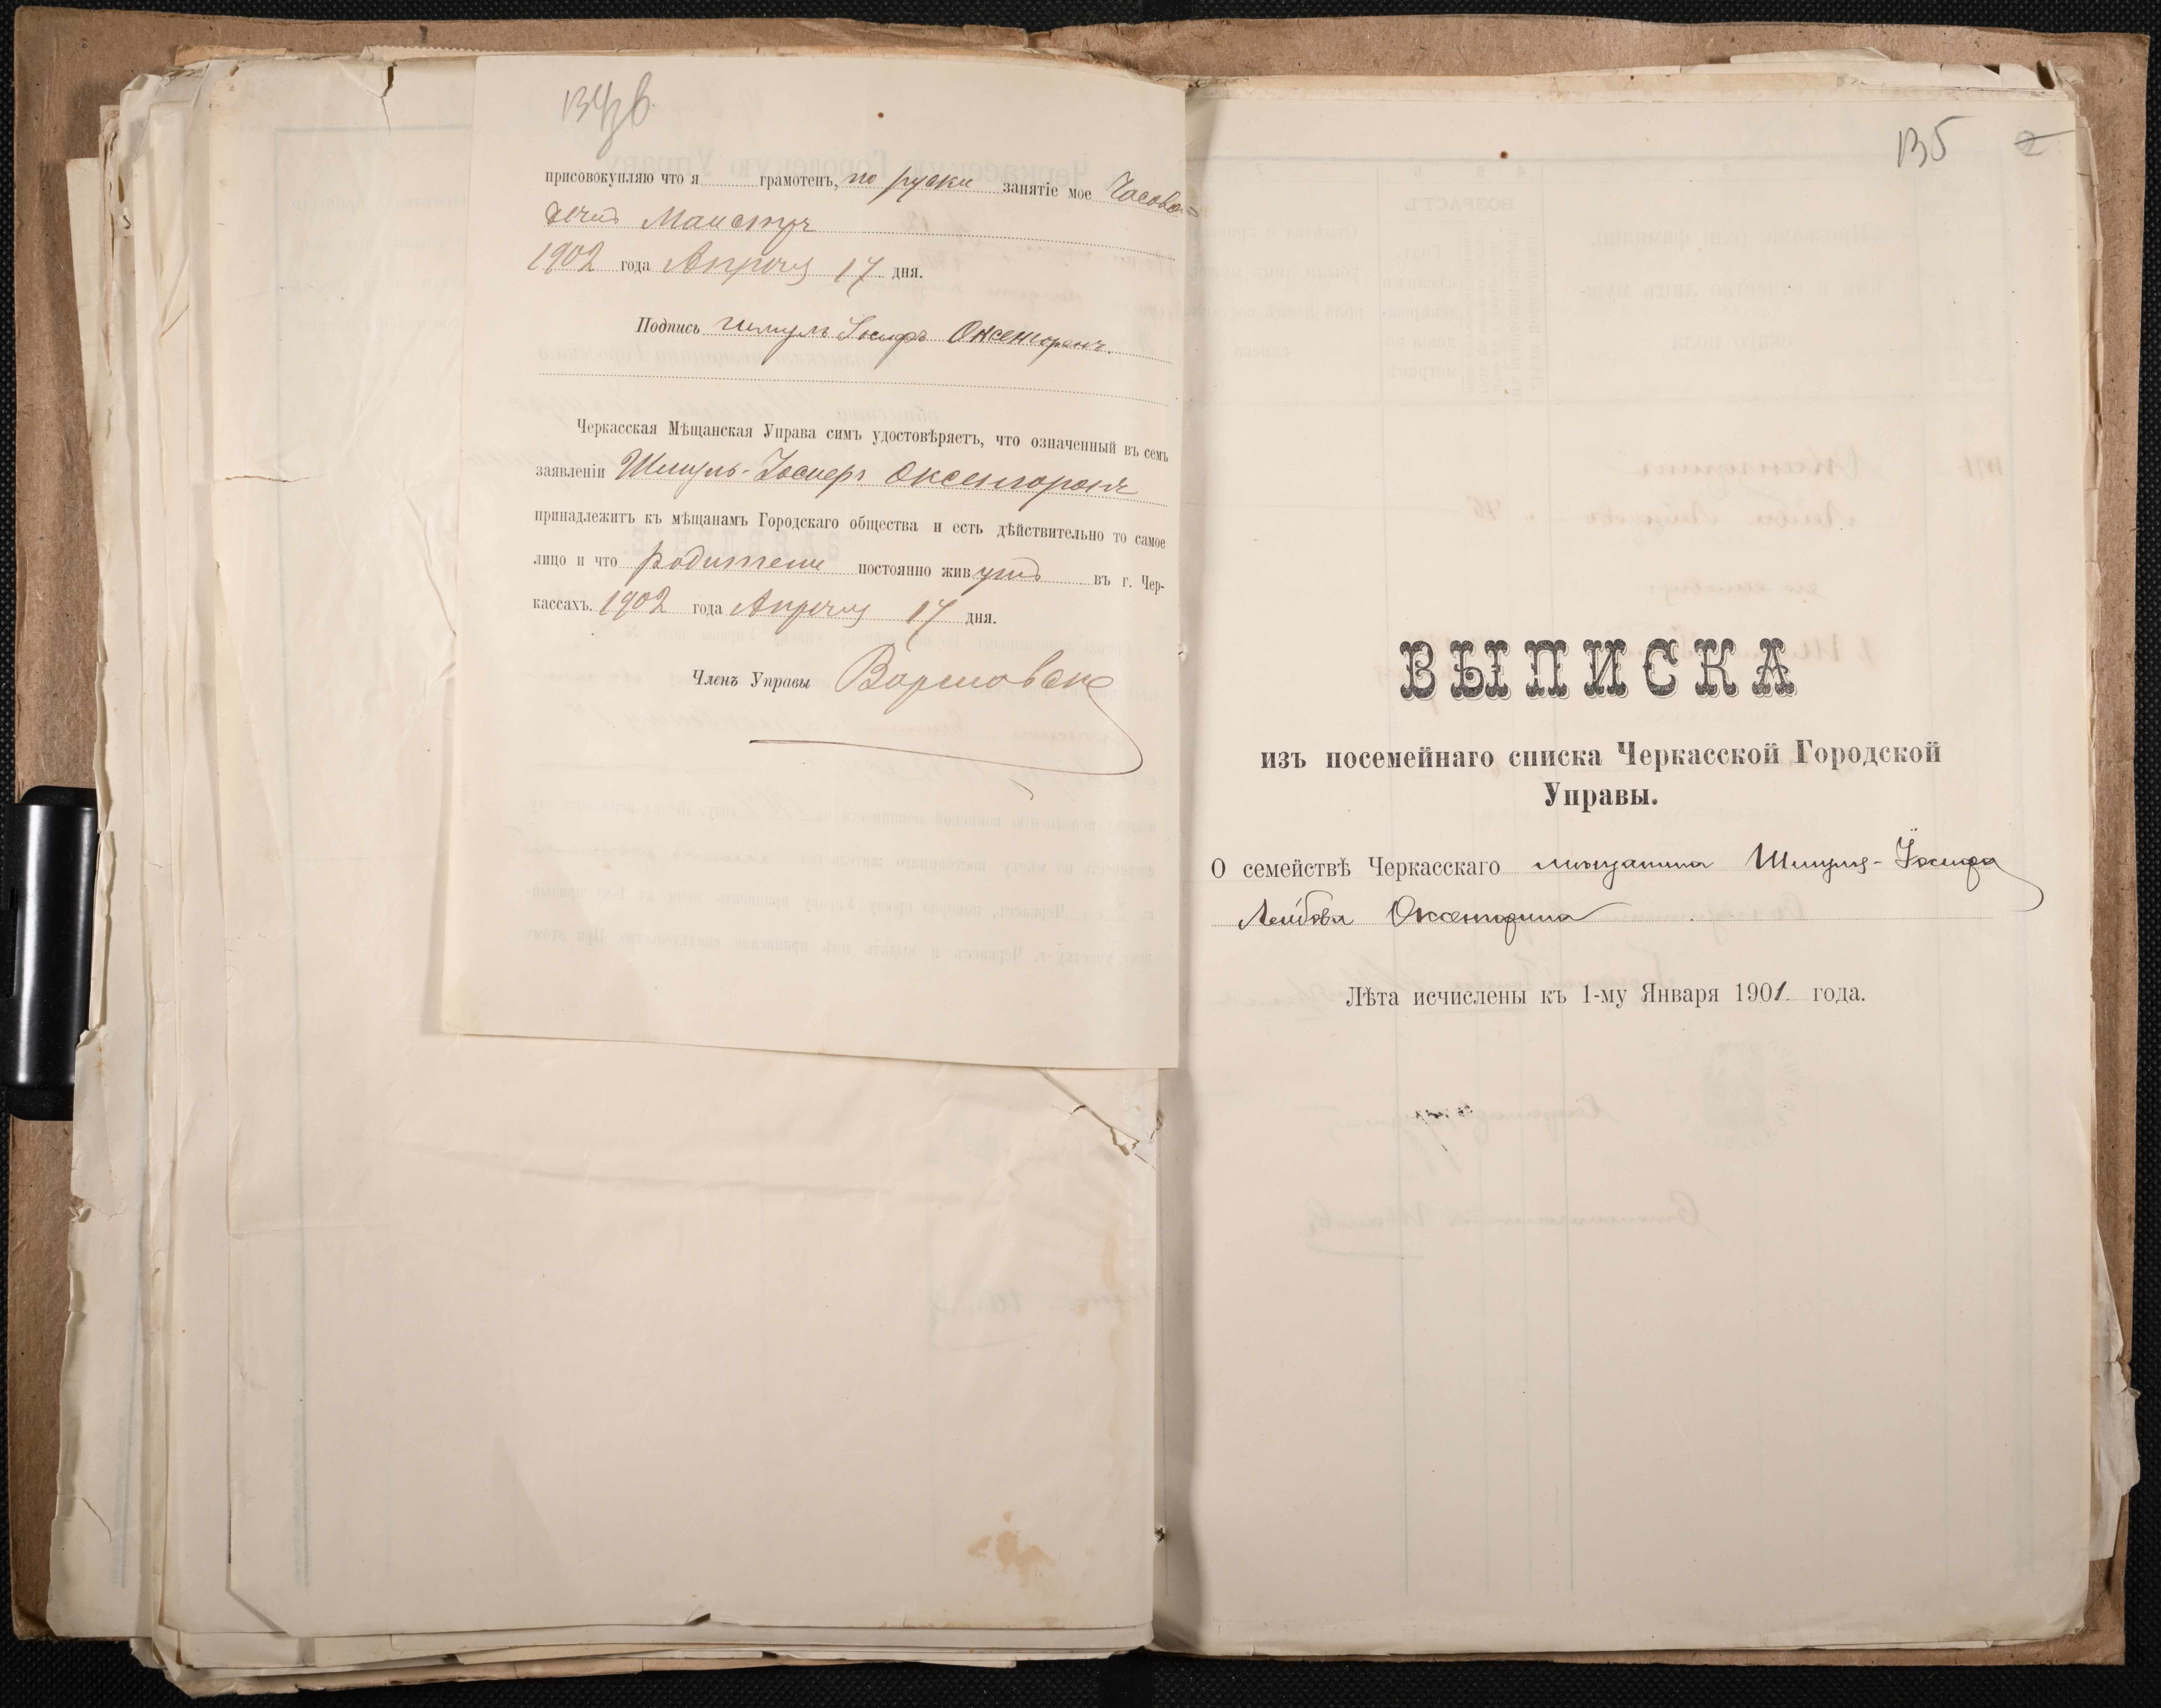 134об
присовокупляю что я грамотенъ, по руски занятіе мое Часово-
дечиъ Маистръ
1902 года Апреля 17 дня.
Подпись Шмуль Іосифъ Оксенгоренъ.
Черкасская Мѣщанская Управа симъ удостовѣряетъ, что означенный въ семъ
заявленіи Шмуль-Іосифъ Оксенгоренъ
принадлежитъ къ мѣщанамъ Городскаго общества и есть дѣйствительно то самое
лицо и что родители постоянно живутъ въ г. Чер-
кассахъ. 1902 года Апреля 17 дня.
Членъ Управы
135 2
ВЫПИСКА
изъ посемейнаго списка Черкасской Городской
Управы.
О семействѣ Черкасскаго мѣщанина Шмуля-Іосифа
Лейбова Оксенгорина
Лѣта исчислены къ 1-му Января 1901 года.